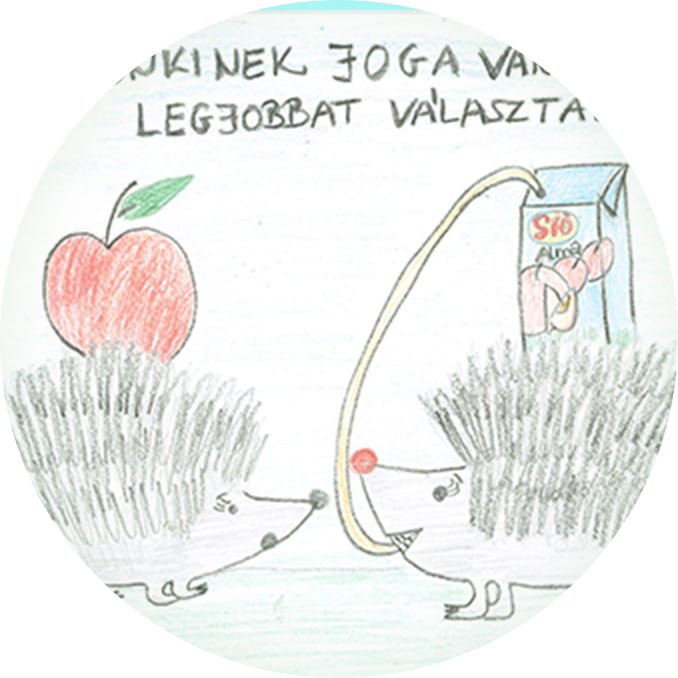 NKINEK JOGA VAN
LEGJOBBAT VÁLASZTA
Sió
Alma